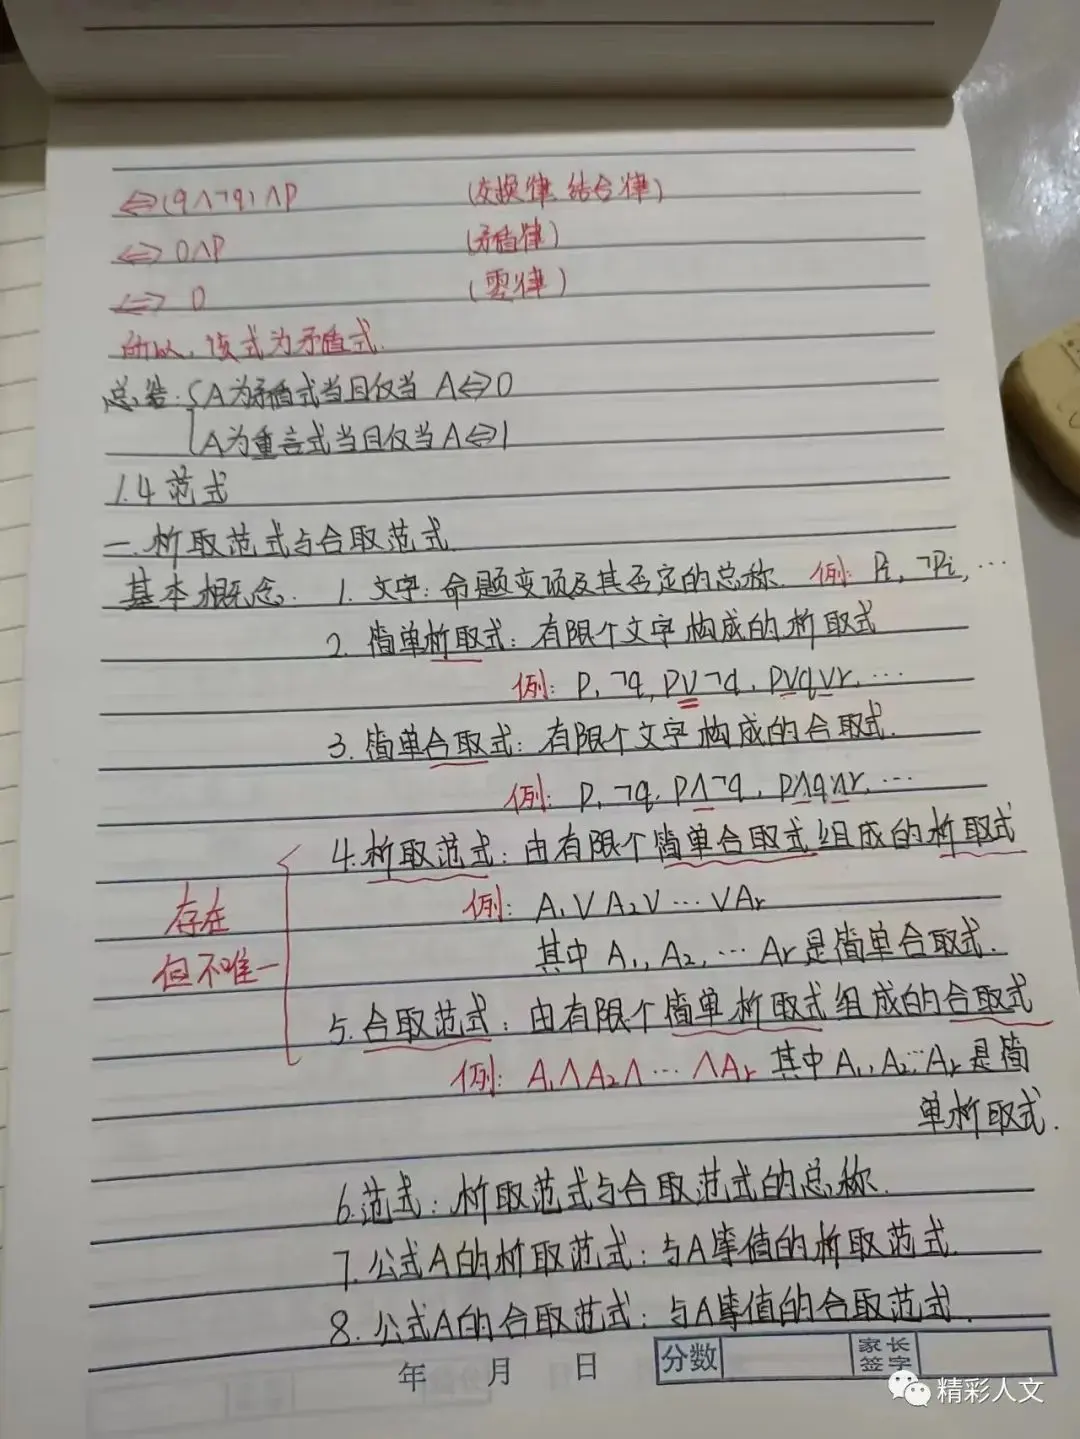 ⇔(q∧¬q)∧p (交换律 结合律)
⇔ 0∧p (矛盾律)
⇔ 0 (零律)
所以,该式为矛盾式.
总结:{A为矛盾式当且仅当 A⇔0
A为重言式当且仅当A⇔1
1.4 范式
一.析取范式与合取范式
基本概念. 1. 文字:命题变项及其否定的总称. 例: Pi, ¬Pi, …
2. 简单析取式:有限个文字构成的析取式
例: p, ¬q, p∨¬q, p∨q∨r, …
3. 简单合取式:有限个文字构成的合取式.
例: p, ¬q, p∧¬q, p∧q∧r, …
4.析取范式:由有限个简单合取式组成的析取式
存在
但不唯一
例: A₁∨A₂∨…∨Ar
其中 A₁, A₂, … Ar是简单合取式.
5.合取范式:由有限个简单析取式组成的合取式
例: A₁∧A₂∧…∧Ar 其中A₁, A₂…Ar是简
单析取式.
6.范式:析取范式与合取范式的总称.
7.公式A的析取范式:与A等值的析取范式
8.公式A的合取范式:与A等值的合取范式.
年 月 日 分数 家长签字
精彩人文